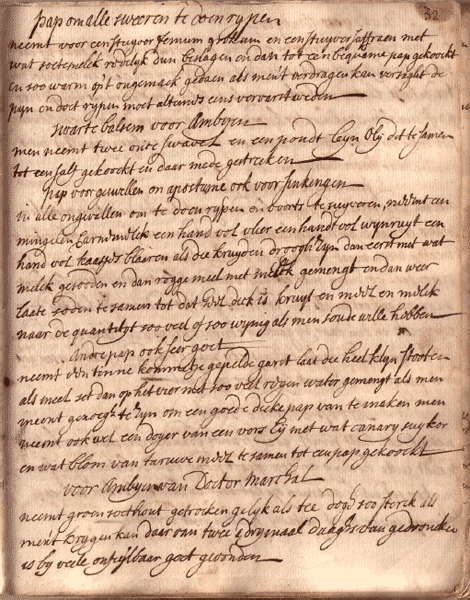 32
pap om alle sweeren te doen rypen
neemt voor een stuyver fenum grecum en een stuyver saffraen met
wat soetemelck redelyk dun beslagen en dan tot een bequame pap gekoockt
en soo warm op't ongemack gedaen als ment verdragen kan versight de
pyn en doet rypen moet altemets eens ververst werden
swarte balsem voor Ambyen
men neemt twee once swavel en een pondt leyn olij dit te samen
tot een salf gekoockt en daar mede gestreken
pap voor geswellen en apostume ook voor sinkingen
in alle ongevallen om te doen rypen en voorts te suyveren, neemt een
mingelen karnemelck een hand vol vlier een hand vol wynruyt een
hand vol kaasjes blaeren als die kruyden droogh zyn dan eerst met wat
melck gesoden en dan rogge meel met melck gemengt en dan weer
laate soden te samen tot dat het dick is kruyt en meel en melck
naar de quantityt soo veel of soo wynig als men soude wille hebben
Andre pap ook seer goet
neemt een tinne kommetje gepelde garst laat die heel klyn stooten
als meel set dan op het vier met soo veel regen water gemengt als men
meent genoegh te zyn om een goede dicke pap van te maken men
neemt ook wel een doyer van een vers Eij met wat canary suyker
en wat blom van taruwe meel te samen tot een pap gekoockt
voor Ambyen van Doctor Marchal
neemt groen soethout getrocken gelyk als tee dogh soo sterck als
ment krygen kan daar van twe a drymaal daaghs van gedroncken
is by veele onfeylbaar goet gevonden